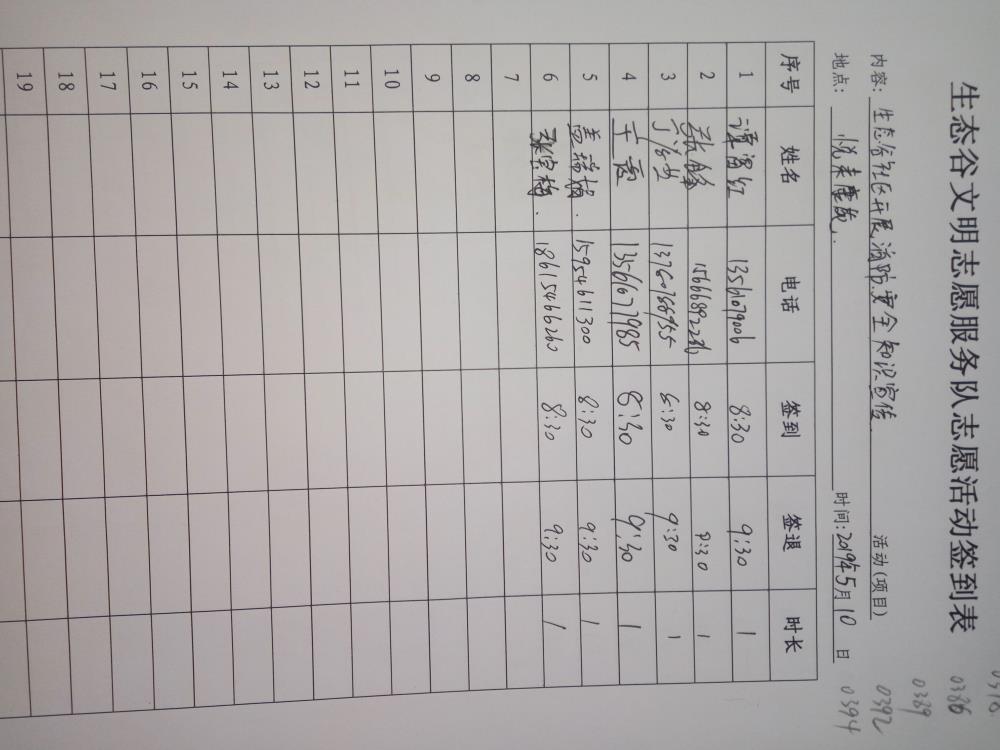 生态谷文明志愿服务队志愿活动签到表
内容: 生态谷社区开展消防安全知识宣传 活动(项目)
地点: 悦来 时间: 2019年5月10日
序号 姓名 电话 签到 签退 时长
1 谭 红 13561079006 8:30 9:30 1
2 8:30 9:30 1
3 8:30 9:30 1
4 王霞 13561677985 8:30 9:30 1
5 盖瑞娟 15954611300 8:30 9:30 1
6 张宗梅 18615466260 8:30 9:30 1
7
8
9
10
11
12
13
14
15
16
17
18
19
0386
0389
0392
0394